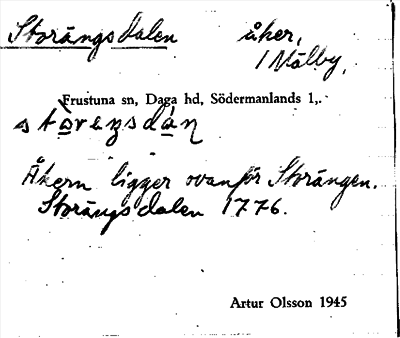 Storängsdalen åker,
1 Mälby,
Frustuna sn, Daga hd, Södermanlands l.,
Åkern ligger ovanför Storängen.
Storängsdalen 1776.
Artur Olsson 1945